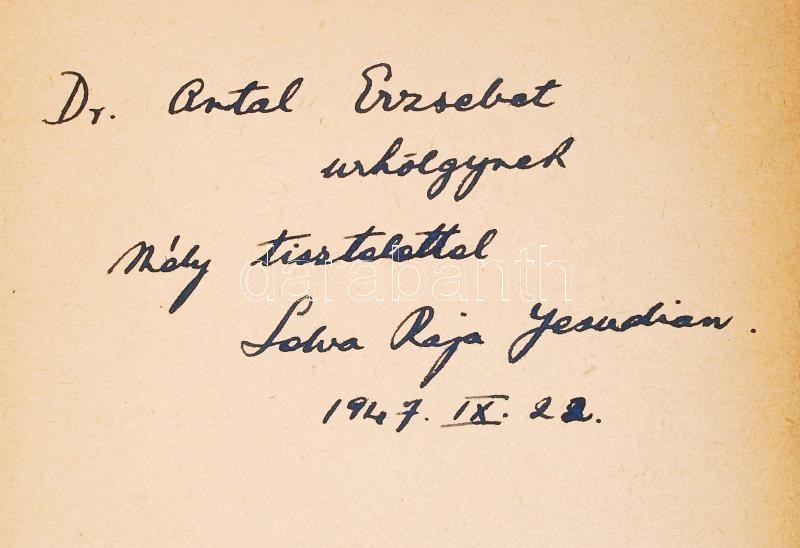 Dr. Antal Erzsebet
urhölgynek
Mély tisztelettel
darabanth
Selva Raja Yesudian.
1947. IX. 22.